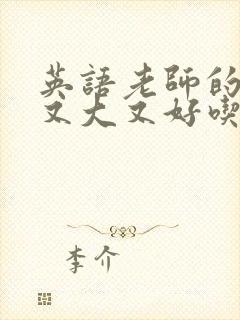 英語老師的
又大又好喫
李介